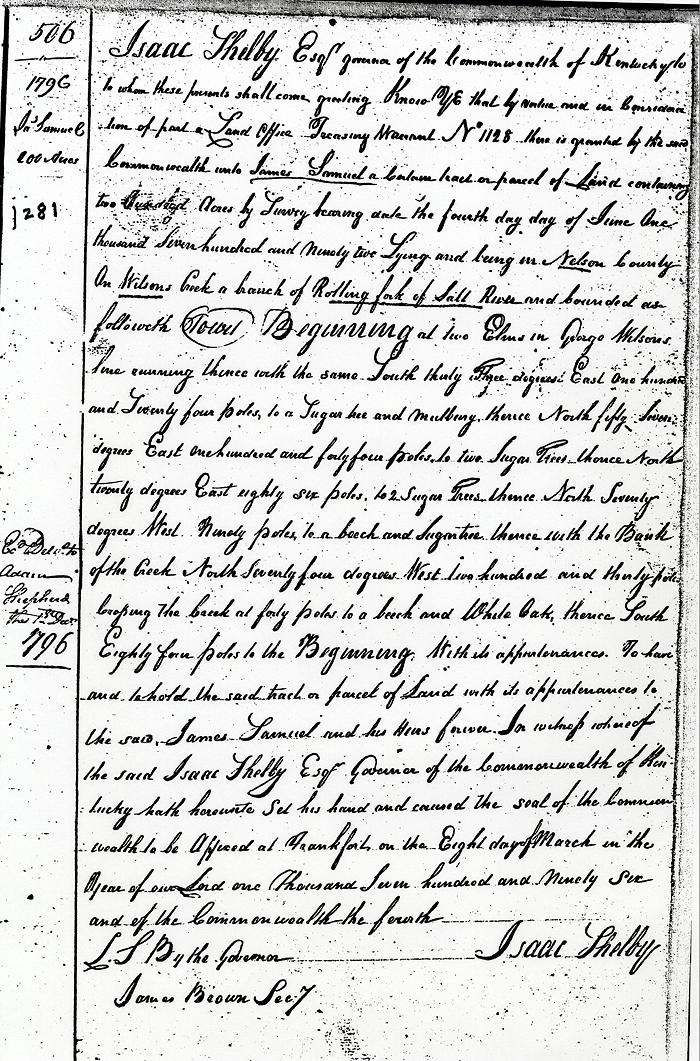 506
1796
Jas Samuel
200 Acres
1281
Exd Deld to
Adam
Shepherd
this 1st Decr
1796
Isaac Shelby Esqr governor of the Commonwealth of Kentucky to
to whom these presents shall come greeting Know YE that by virtue and in Considera
tion of part a Land Office Treasury Warrant No 1128 there is granted by the said
Commonwealth unto James Samuel a Certain tract or parcel of Land containing
two hundred Acres by Survey bearing date the fourth day day of June One
thousand Seven hundred and Ninety two Lying and being in Nelson County
On Wilsons Creek a branch of Rolling fork of Salt River and bounded as
followeth (Towd) Beginning at two Elms in George Wilsons
line running thence with the same South thirty three degrees East One hundred
and Twenty four poles, to a Sugar tree and mulbury, thence North fifty Seven
degrees East one hundred and forty four poles, to two Sugar Trees thence North
twenty degrees East eighty six poles, to 2 Sugar Trees thence North Seventy
degrees West Ninety poles, to a beech and Sugartree thence with the Bank
of the Creek North Seventy four degrees West two hundred and thirty poles
Crossing the Creek at forty poles to a beech and White Oak, thence South
Eighty four poles to the Beginning, With its appurtenances. To have
and to hold the said tract or parcel of Land with its appurtenances to
the said, James Samuel and his Heirs forever. In witness whereof
the said Isaac Shelby Esqr Governor of the Commonwealth of Ken
tucky hath hereunto Set his hand and caused the seal of the Common
wealth to be Affixed at Frankfort on the Eight day of March in the
Year of our Lord one Thousand Seven hundred and Ninety six
and of the Commonwealth the fourth
L. S By the Governor Isaac Shelby
James Brown Secy